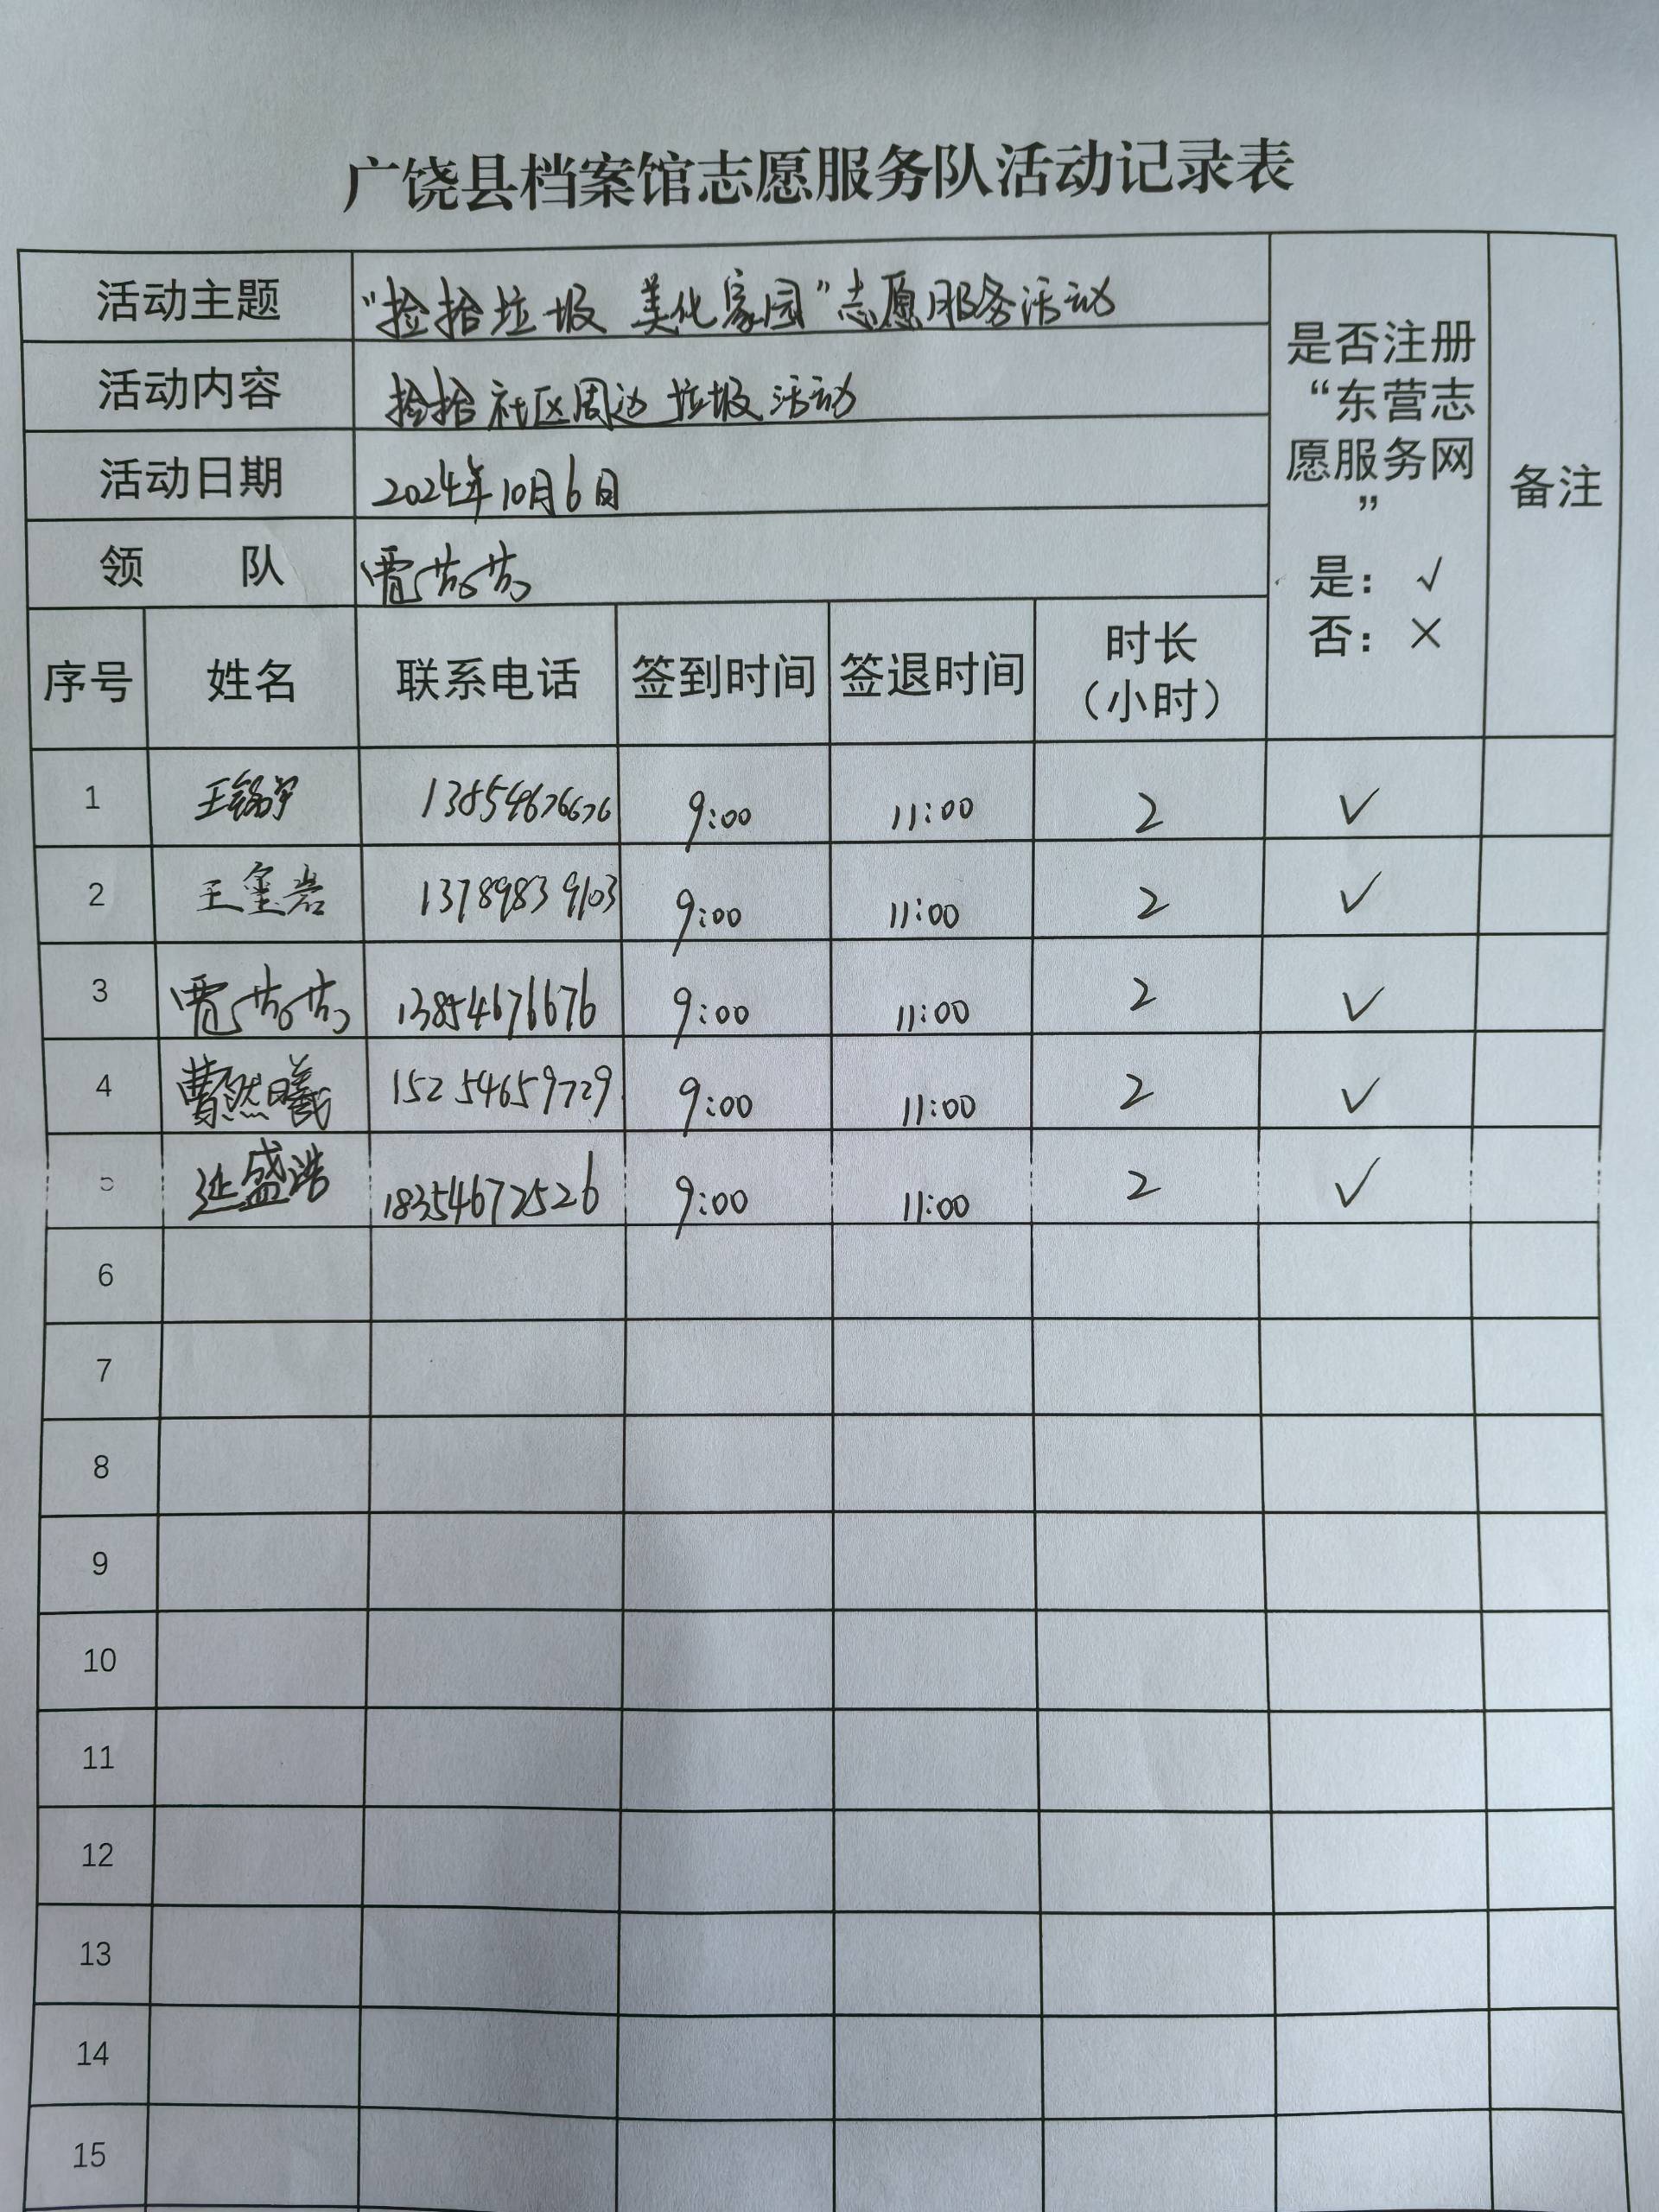 广饶县档案馆志愿服务队活动记录表
活动主题 “捡拾垃圾 美化家园”志愿服务活动
活动内容 捡拾社区周边垃圾活动
活动日期 2024年10月6日
领 队 贾芳芳
是否注册
“东营志
愿服务网
”
是：√
否：×
备注
序号 姓名 联系电话 签到时间 签退时间 时长
（小时）
1 王 13854676676 9:00 11:00 2 √
2 王玺岩 13789839103 9:00 11:00 2 √
3 贾芳芳 13854676676 9:00 11:00 2 √
4 曹然曦 15254659729 9:00 11:00 2 √
5 延盛浩 18354672526 9:00 11:00 2 √
6
7
8
9
10
11
12
13
14
15